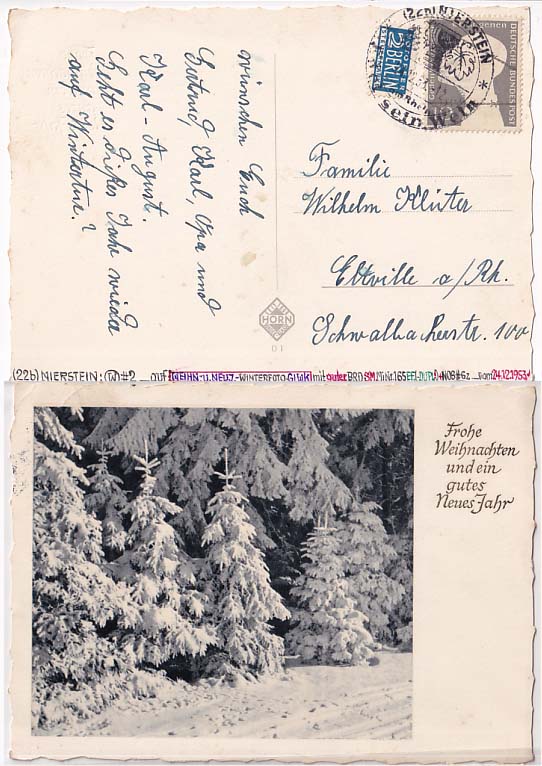 (22b) NIERSTEIN
sein Wein
NOTOPFER
2 BERLIN
STEUERMARKE
DEUTSCHE BUNDESPOST
wünschen Euch
Gertrud, Karl, Opa und
Karl-August.
Geht es dieses Jahr wieder
auf Wintertur.?
Familie
Wilhelm Klüter
Eltville a/Rh.
Schwalbacherstr. 100
HORN
10
(22b) NIERSTEIN: (W)#2 auf WEIHN-U.NEUJ.-WINTERFOTO-GLWK mit guter BRD SM MiNr.165EF(-DUPJ)+NOB#6z vom 24.12.1953
Frohe
Weihnachten
und ein
gutes
Neues Jahr